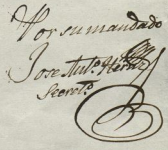 Por su mandado
Jose Ant.o
Secret.o